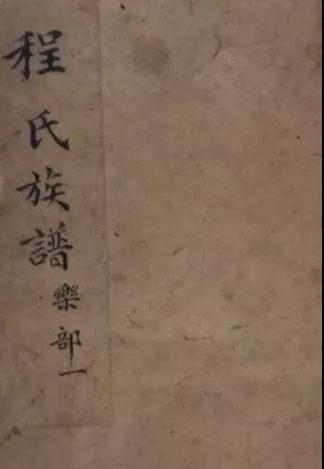 程氏族譜
樂部一